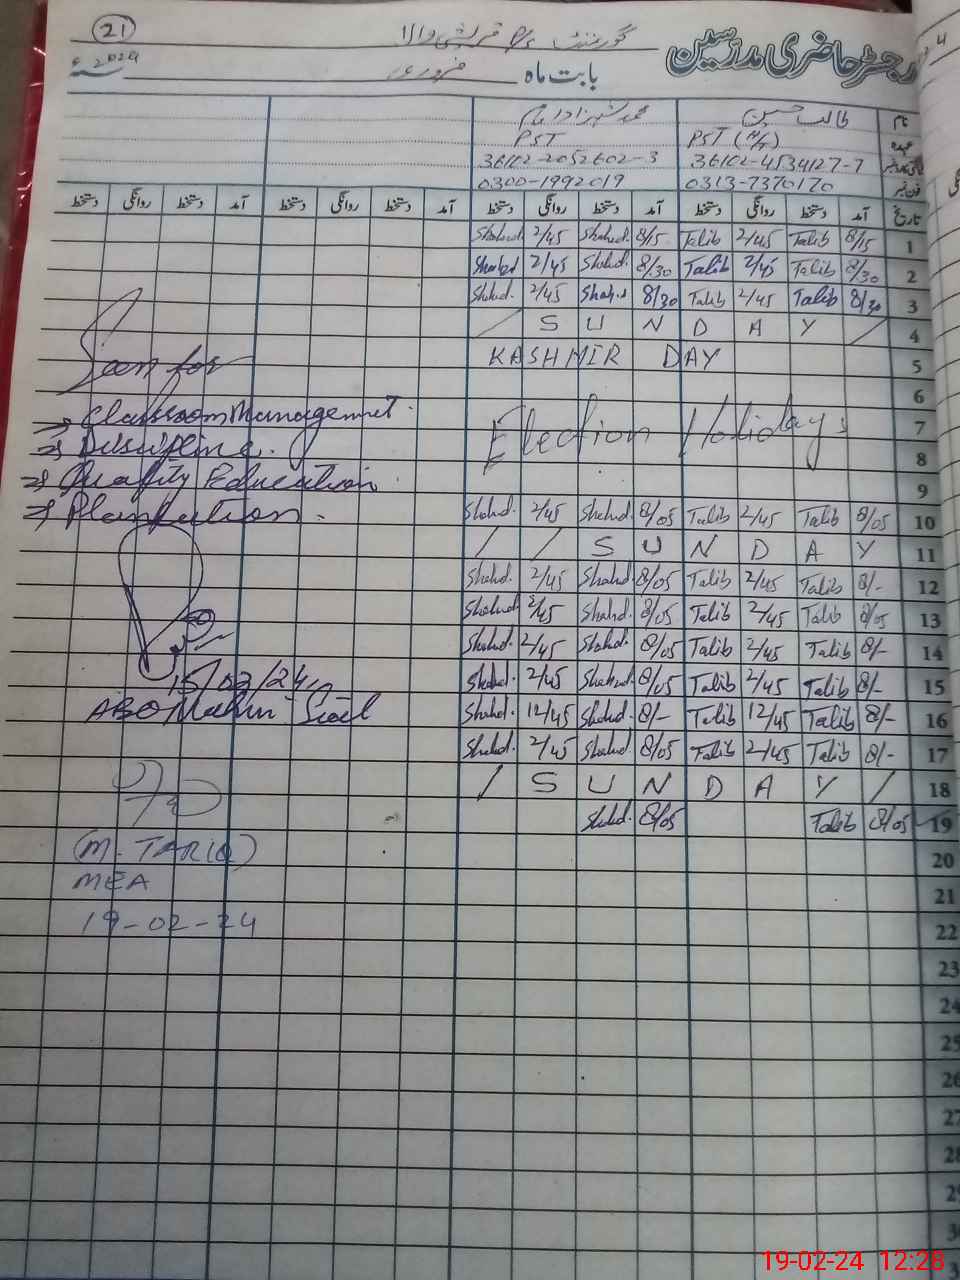 21
گورنمنٹ P/S قریشی والا
رجسٹر حاضری مدرسین
بابت ماہ فروری 2024ء
نام طالب حسین محمد شہزاد
عہدہ PST (H/T) PST
36102-4534127-7 36102-2052602-3
فون نمبر 0313-7370170 0300-1992019
تاریخ آمد دستخط روانگی دستخط آمد دستخط روانگی دستخط آمد دستخط روانگی دستخط آمد دستخط روانگی دستخط
Shahd 2/45 Shahd. 8/15 Talib 2/45 Talib 8/15 1
Shahd 2/45 Shahd. 8/30 Talib 2/45 Talib 8/30 2
Shahd. 2/45 Shahd 8/30 Talib 2/45 Talib 8/30 3
/ S U N D A Y / 4
KASHMIR DAY 5
6
Election Holidays 7
8
9
Shahd. 2/45 Shahd. 8/05 Talib 2/45 Talib 8/05 10
/ / S U N D A Y 11
Shahd. 2/45 Shahd. 8/05 Talib 2/45 Talib 8/- 12
Shahd. 2/45 Shahd. 8/05 Talib 2/45 Talib 8/05 13
Shahd. 2/45 Shahd. 8/05 Talib 2/45 Talib 8/- 14
Shahd. 2/45 Shahd. 8/05 Talib 2/45 Talib 8/- 15
Shahd. 12/45 Shahd. 8/- Talib 12/45 Talib 8/- 16
Shahd. 2/45 Shahd. 8/05 Talib 2/45 Talib 8/- 17
/ S U N D A Y / 18
Shahd. 8/05 Talib 8/05 19
20
21
22
23
24
25
26
27
28
29
Seen for
⇒ Classroom Management.
⇒ Discipline.
⇒ Quality Education.
⇒ Plantation.
15/02/24,
(M. TARIQ)
MEA
19-02-24
19-02-24 12:28